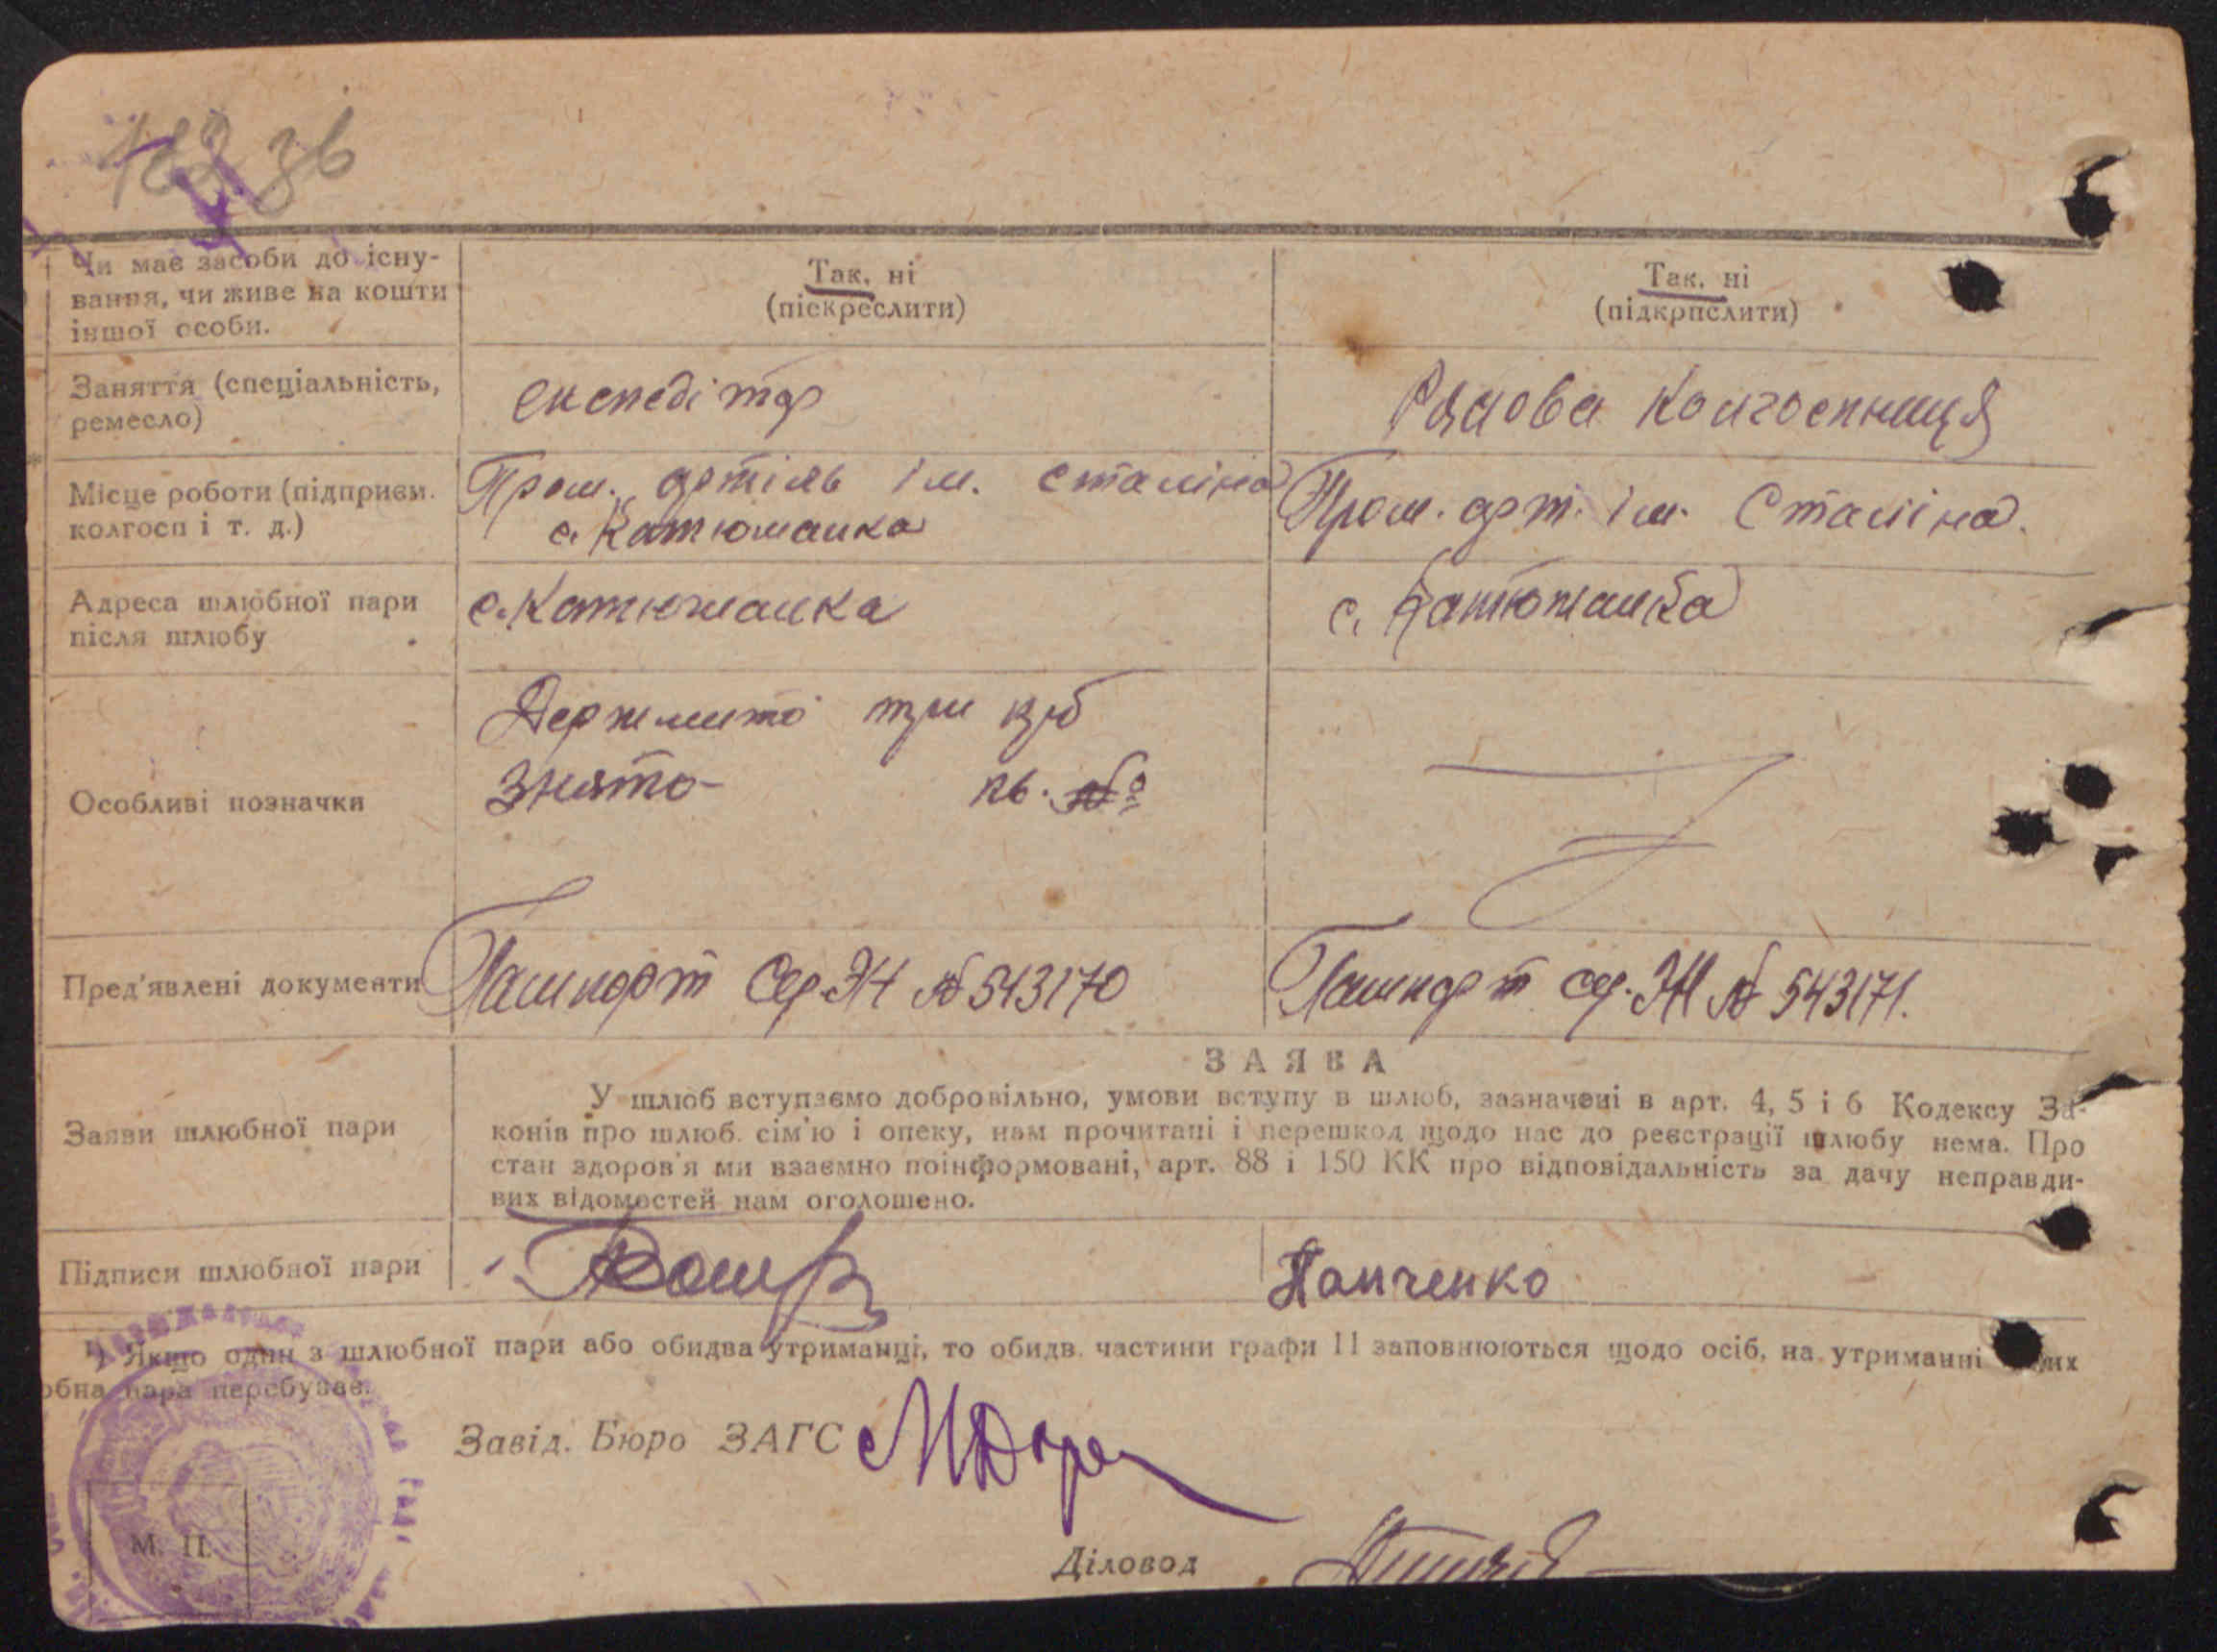 Чи має засоби до існу-
вання, чи живе на кошти
іншої особи.
Так, ні
(піекреслити)
Так, ні
(підкрпслити)
Заняття (спеціальність,
ремесло)
експедітор
Рядова колгоспниця
Місце роботи (підприєм.
колгосп і т. д.)
Пром. артіль ім. Сталіна
с. Катюжанка
Пром. арт. ім. Сталіна.
Адреса шлюбної пари
після шлюбу
с. Катюжанка
с. Катюжанка
Особливі позначки
Держмито три крб
Знято- кв. №
Пред'явлені документи
Пашпорт Сер. ЖЧ № 543170
Пашпорт сер. ЖЧ № 543171.
Заяви шлюбної пари
ЗАЯВА
У шлюб вступаємо добровільно, умови вступу в шлюб, зазначені в арт. 4, 5 і 6 Кодексу За-
конів про шлюб. сім'ю і опеку, нам прочитані і перешкод щодо нас до реєстрації шлюбу нема. Про
стан здоров'я ми взаємно поінформовані, арт. 88 і 150 КК про відповідальність за дачу неправди-
вих відомостей нам оголошено.
Підписи шлюбної пари
Панченко
¹) Якщо один з шлюбної пари або обидва утриманці, то обидв. частини графи 11 заповнюються щодо осіб, на утриманні их
обна пара перебуває.
Завід. Бюро ЗАГС
М. П.
Діловод